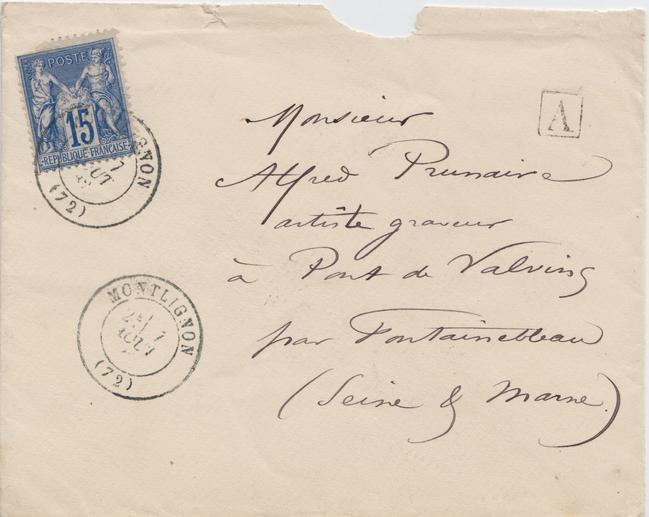 POSTE
15
REPUBLIQUE FRANÇAISE
GNON
7
OUT
(72)
A
Monsieur
Alfred Prunaire
artiste graveur
à Pont de Valvins
par Fontainebleau
(Seine & Marne)
MONTLIGNON
7
AOUT
(72)